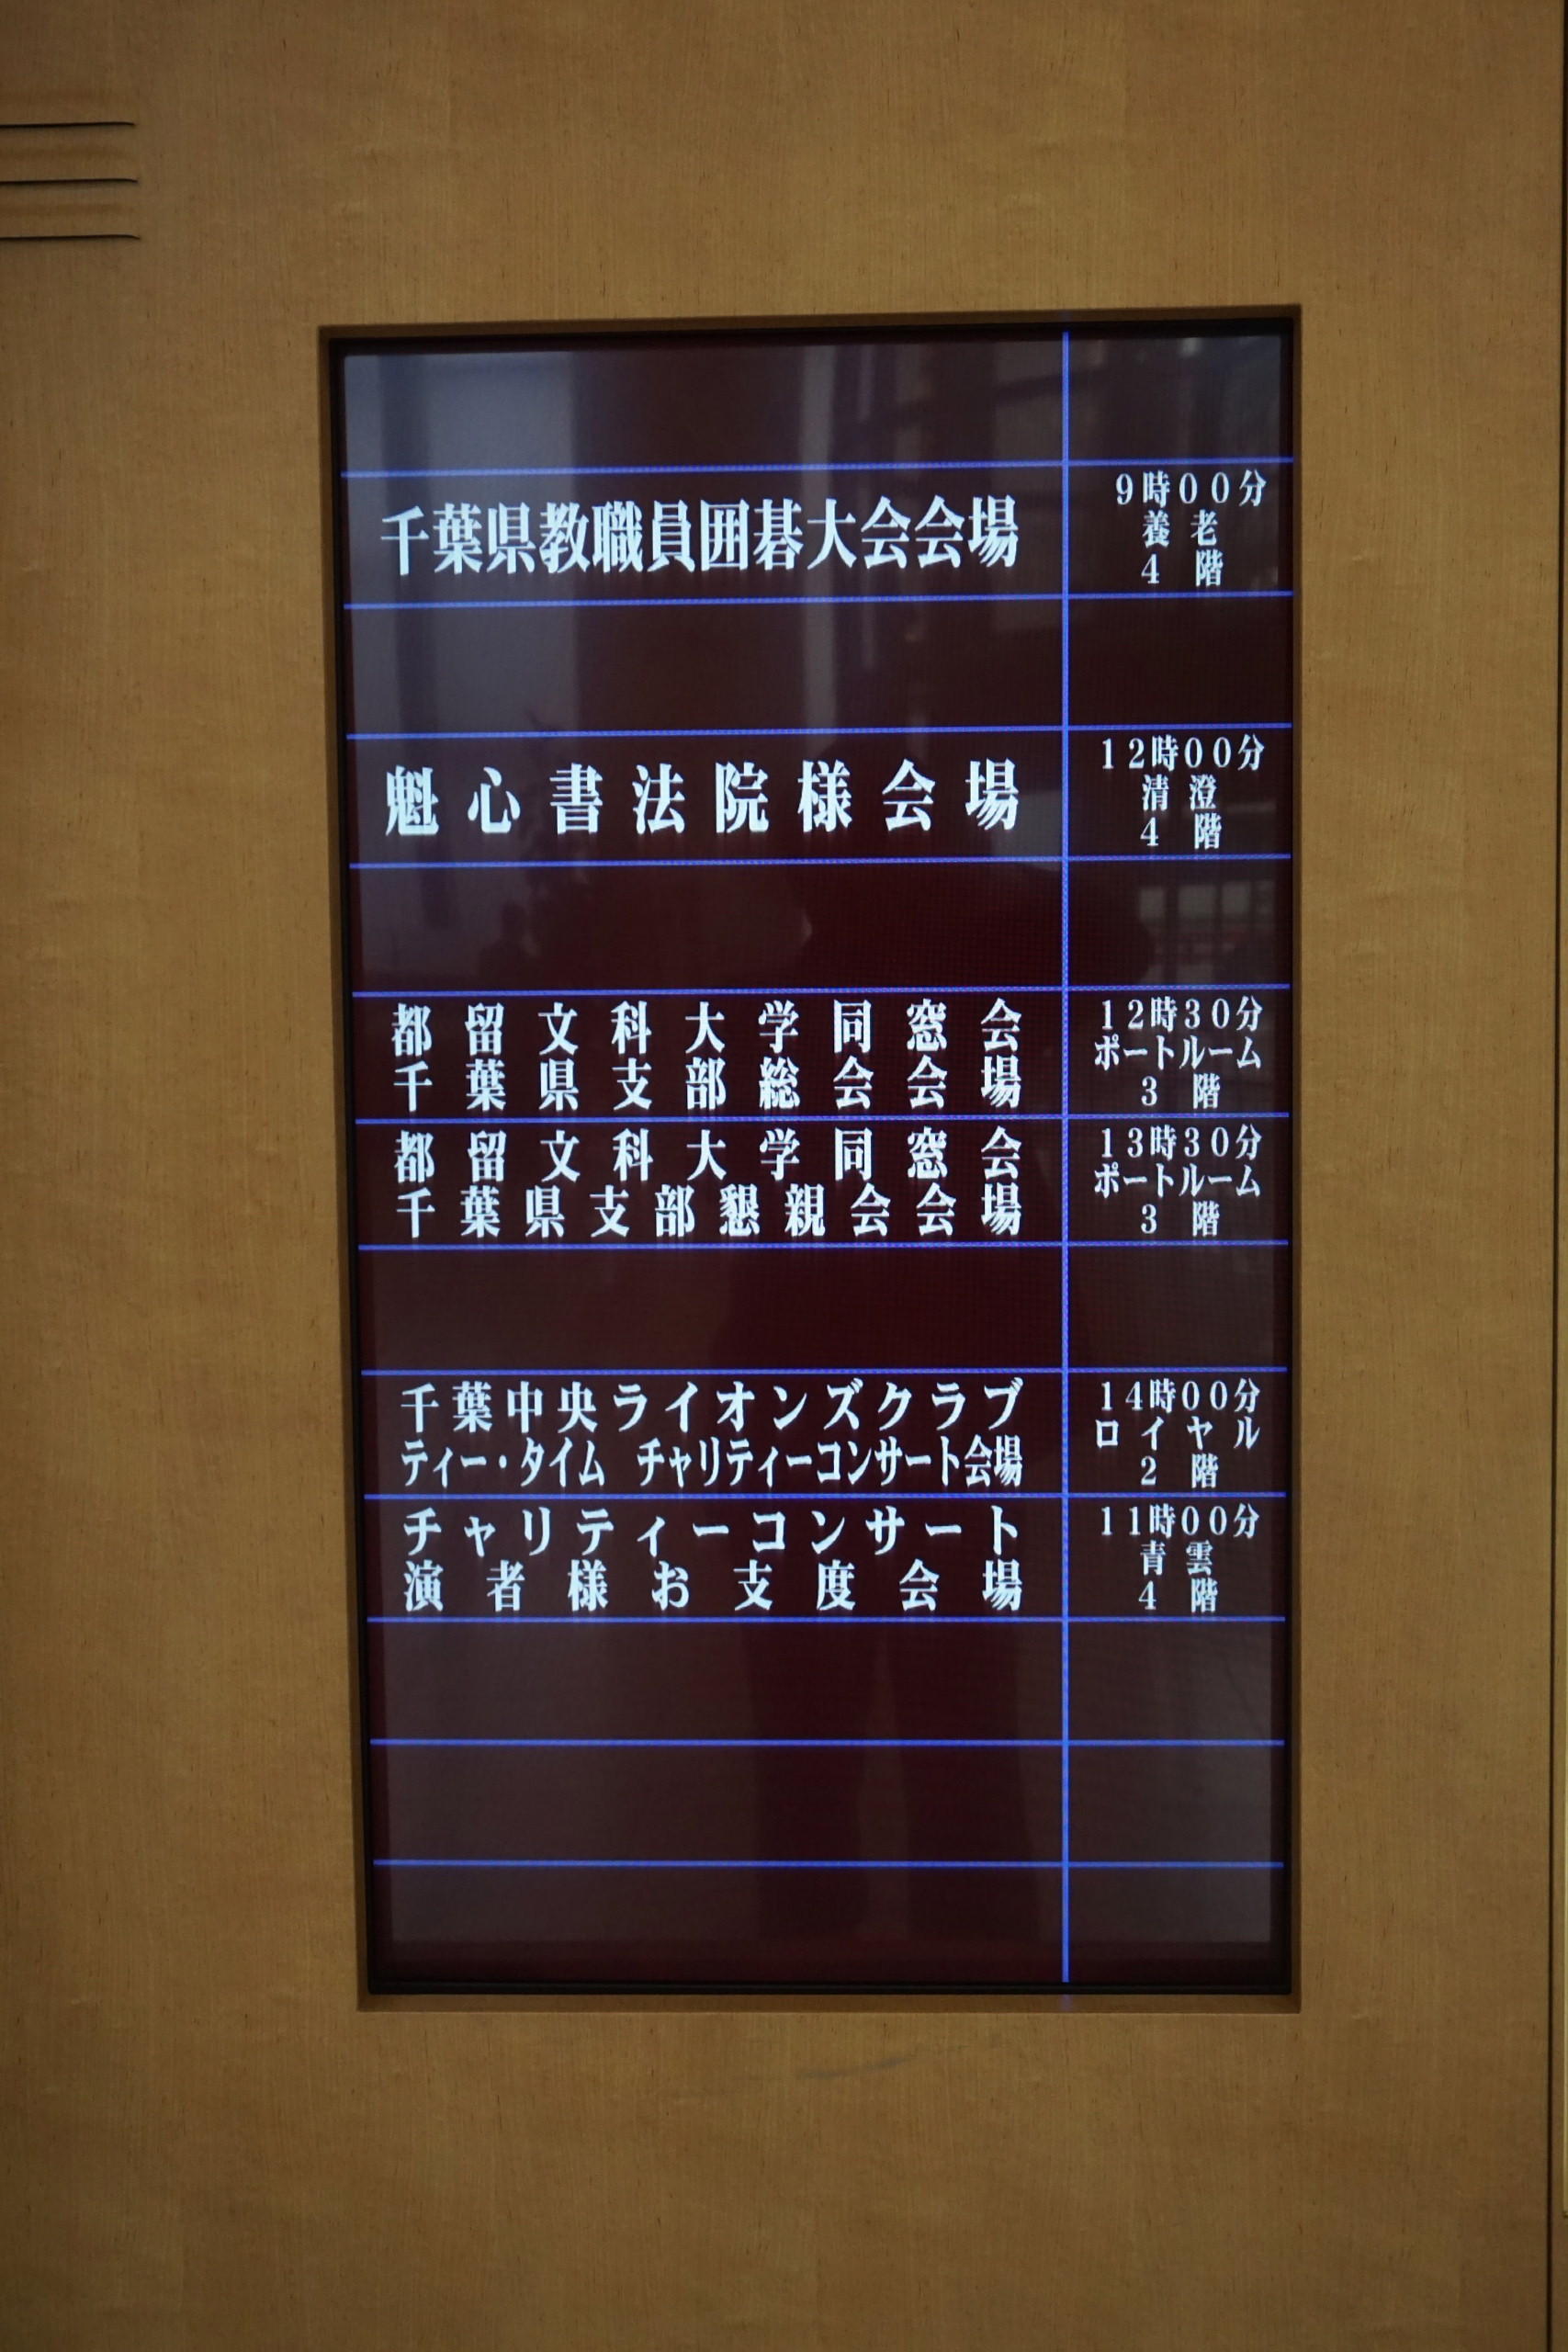 千葉県教職員囲碁大会会場
9時00分
養老
4階
魁心書法院様会場
12時00分
清澄
4階
都留文科大学同窓会
千葉県支部総会会場
12時30分
ポートルーム
3階
都留文科大学同窓会
千葉県支部懇親会会場
13時30分
ポートルーム
3階
千葉中央ライオンズクラブ
ティー・タイム チャリティーコンサート会場
14時00分
ロイヤル
2階
チャリティーコンサート
演者様お支度会場
11時00分
青雲
4階